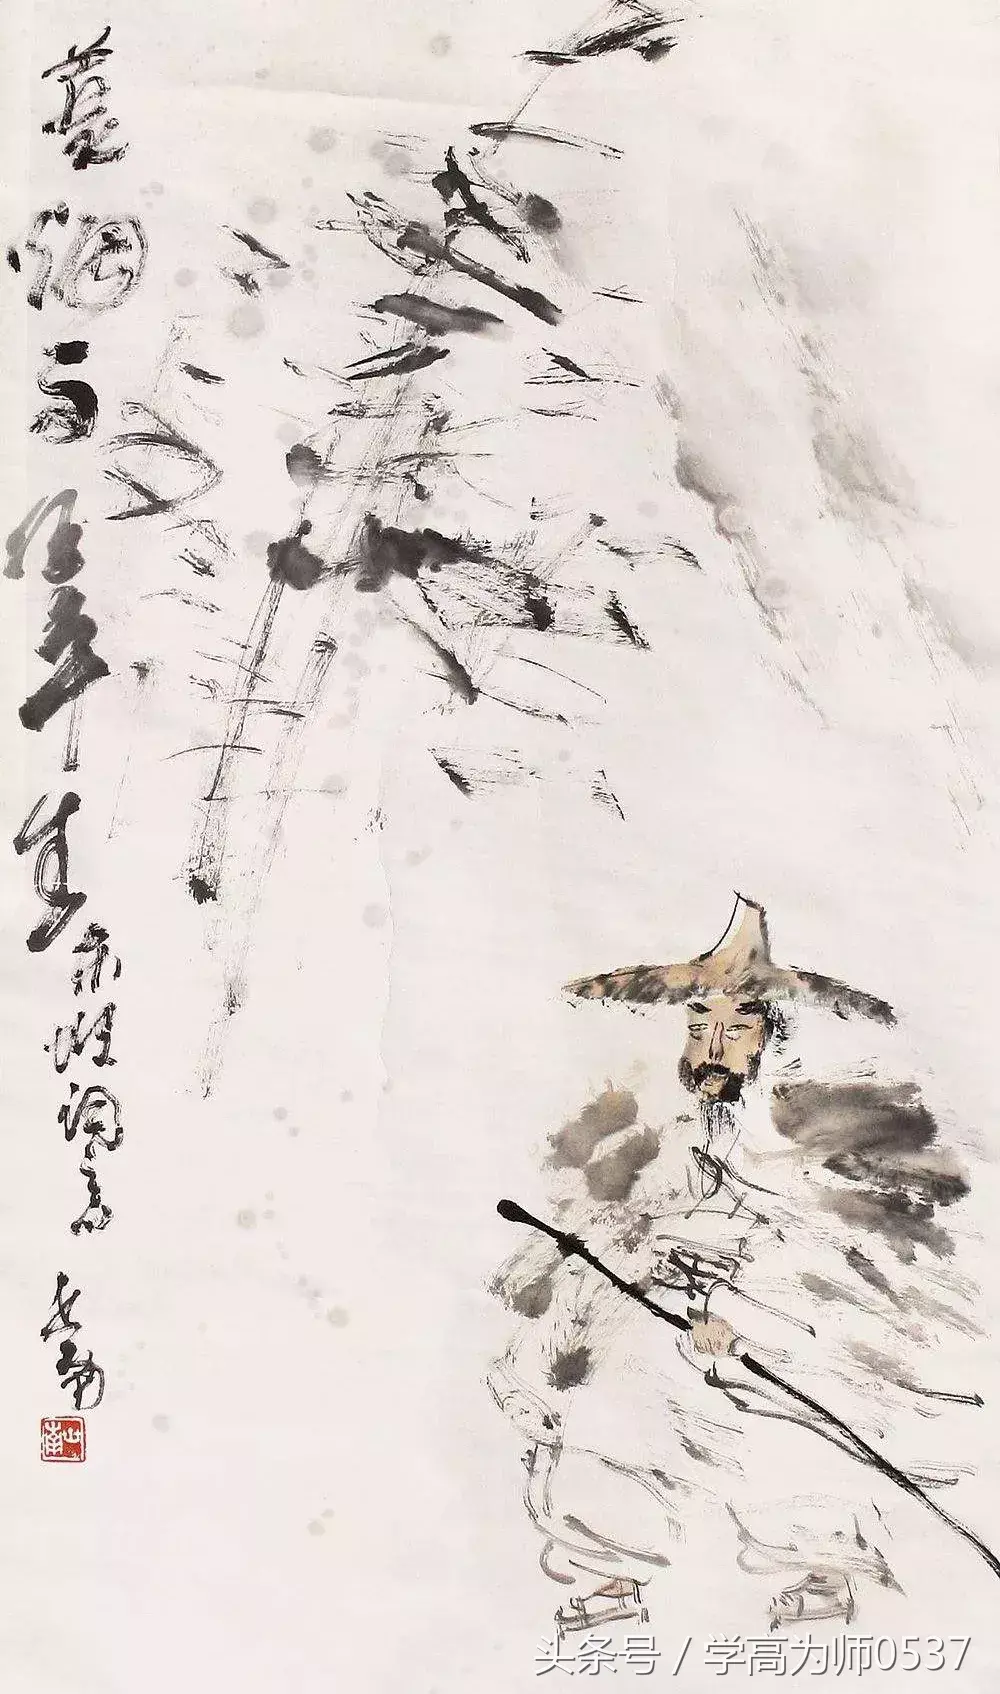 蓑烟雨任平生
东坡词意
世南
头条号 / 学高为师0537